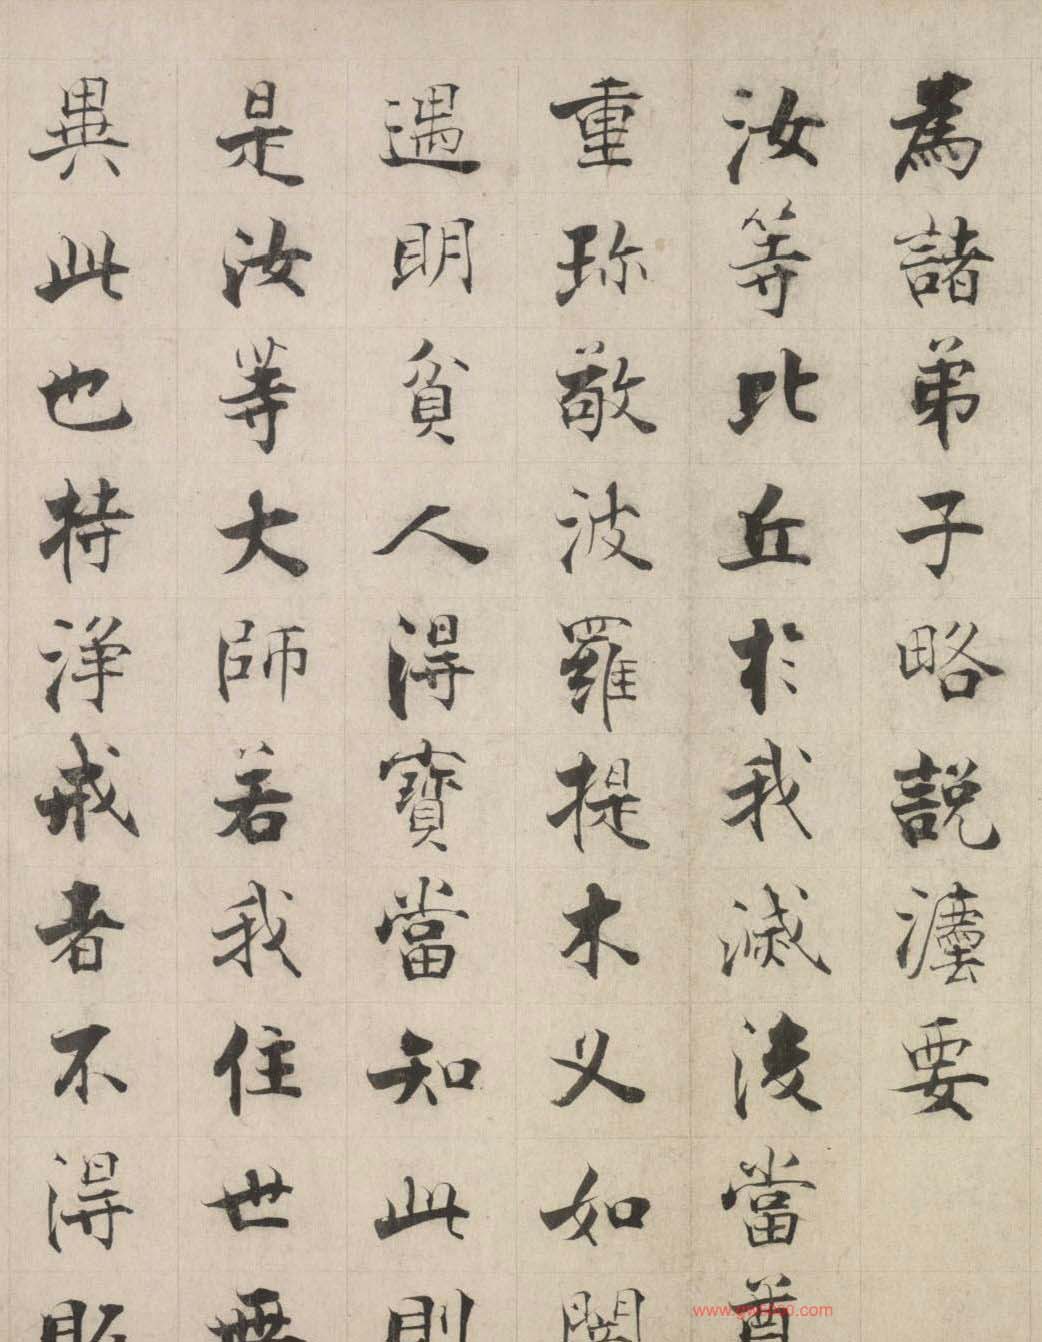 為諸弟子略說灋要
汝等比丘於我滅後當尊
重珎敬波羅提木义如闇
遇明貧人淂寶當知此則
是汝等大師若我住世無
異此也持淨戒者不淂販